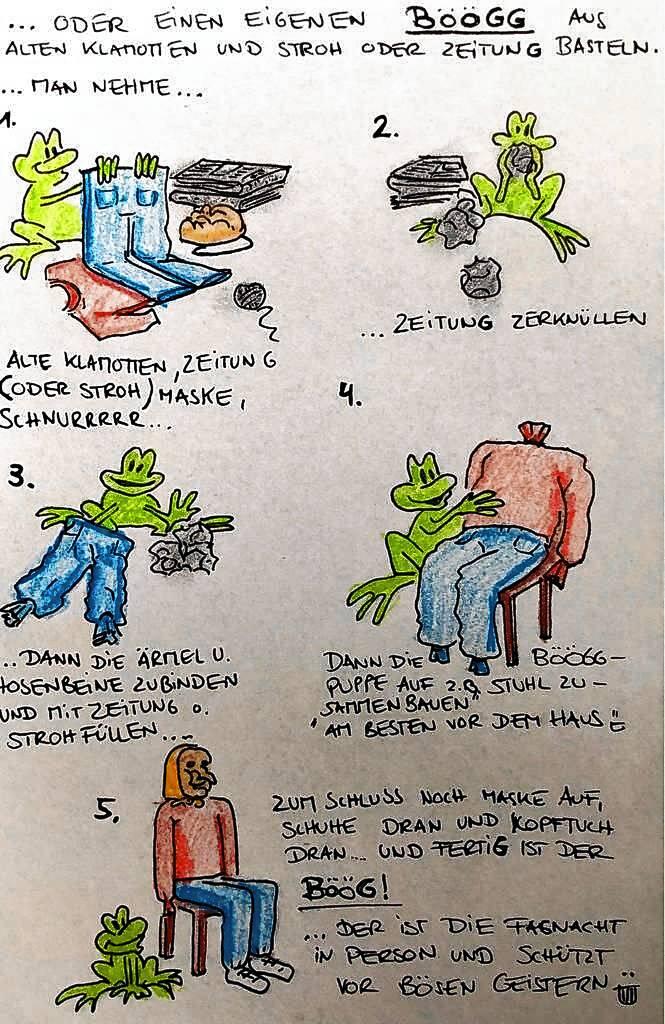 ... ODER EINEN EIGENEN BÖÖGG AUS
ALTEN KLAMOTTEN UND STROH ODER ZEITUNG BASTELN.
... MAN NEHME...
1.
ALTE KLAMOTTEN, ZEITUNG
(ODER STROH) MASKE,
SCHNURRRRR...
2.
... ZEITUNG ZERKNÜLLEN
3.
.. DANN DIE ÄRMEL U.
HOSENBEINE ZUBINDEN
UND MIT ZEITUNG O.
STROH FÜLLEN...
4.
DANN DIE BÖÖGG-
PUPPE AUF Z.B. STUHL ZU-
SAMMENBAUEN
"AM BESTEN VOR DEM HAUS"
5.
ZUM SCHLUSS NOCH MASKE AUF,
SCHUHE DRAN UND KOPFTUCH
DRAN... UND FERTIG IST DER
BÖÖG!
... DER IST DIE FASNACHT
IN PERSON UND SCHÜTZT
VOR BÖSEN GEISTERN